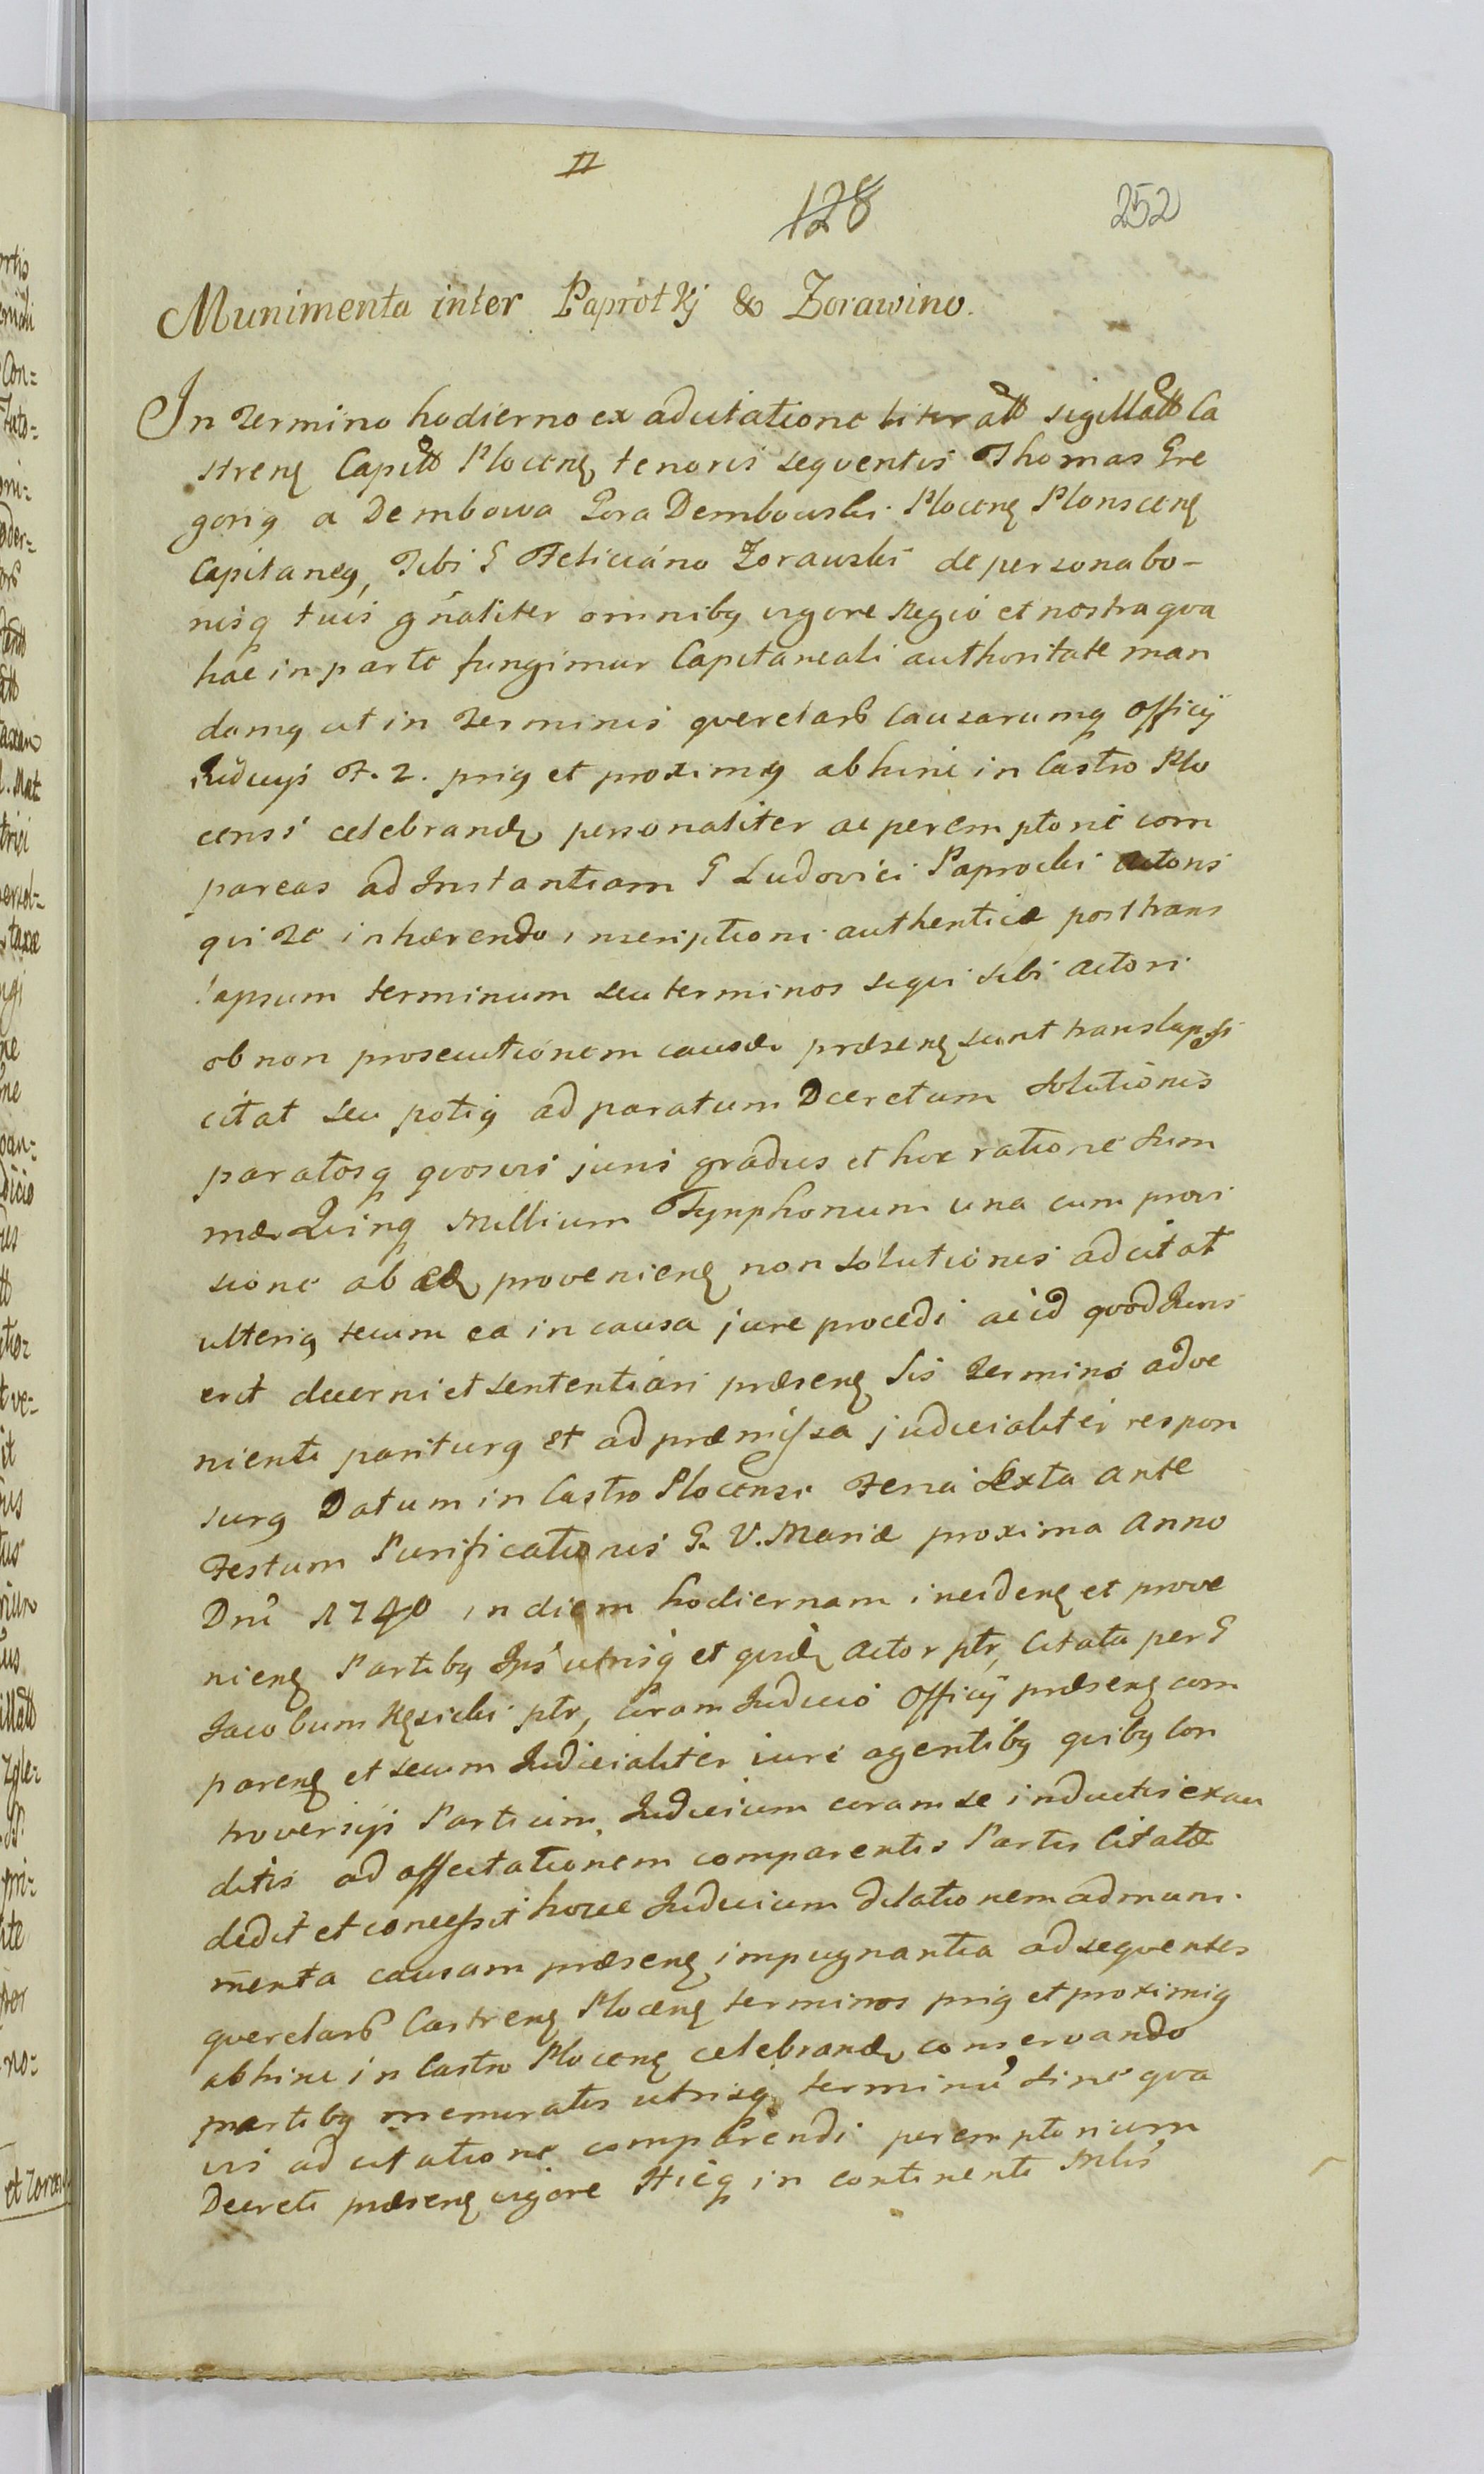 II
128
252
Munimenta inter Paprotkj & Zorawino.
In Termino hodierno ex adcitatione literatt sigillatt Ca
streng Capitt Ploceng tenoris seqventis Thomas Gre
gorig a Dembowa Gora Dembowski Ploceng Plonsceng
Capitaneg, Tibi G Feliciano Zorawski de persona bo-
nisq tuis gñaliter omnibg vigore Regio et nostra qva
hac in parte fungimur Capitaneali authoritate man
damg ut in Terminis qverelarb Causarumq officij
Judicijs F. 2. prig et proximg abhinc in Castro Plo
censi celebrand personaliter ac peremptorie com
pareas ad Instantiam G Ludovici Paprocki Actoris
qvi Te inhærendo inscriptioni authenticæ post trans
lapsum terminum seu terminos siqvi sibi actori
ob non prosecutionem causæ præseng sunt translapssi
citat seu potig ad paratum Decretum Solutionis
paratosq qvosvis juris gradus et hoc ratione sum
mæ Qvinq Millium Tynphonum una cum provi
sione ab ea provenieng non solutionis adcitat
ulterig tecum ea in causa jure procedi ac id qvod Juris
erit decerni et sententiari præseng Sis Termino adve
nienti pariturg et ad præmissa judicialiter respon
surg Datum in Castro Plocensi Feria Sexta ante
Festum Purificationis B. V. Mariæ proxima Anno
Dni 1740 in diem hodiernam incideng et prove
nieng Partibg Ips utrisq et qvid Actor ptr, Citata per G
Jacobum Kęsicki ptr, Coram Judicio Officij præseng com
pareng et secum Judicialiter iure agentibg qvibg Con
troversijs Partium Judicium coram se inductis exau
ditis ad affectationem comparentis Partis Citatæ
dedit et concessit hocce Judicium dilationem ad muni
menta causam præseng impugnantia ad seqventes
qverelarb Castreng Ploceng terminos prig et proximig
abhinc in Castro Ploceng celebrand conservando
partibg memoratis utrisq terminũ sine qva
vis adcitatione comparendi peremptorium
Decreti præseng vigore Hicq in continenti Mlis